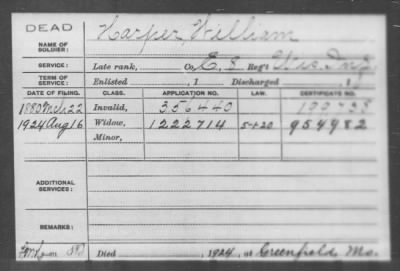 DEAD
NAME OF SOLDIER: Harper, William
SERVICE: Late rank, Co. E. 8 Reg't Wis. Inf.
TERM OF SERVICE: Enlisted , 1 Discharged , 1
DATE OF FILING. CLASS. APPLICATION NO. LAW. CERTIFICATE NO.
1880 22 Invalid, 356440
1924 Aug 16 Widow, 1222714 5-1-20 954982
Minor,
ADDITIONAL SERVICES:
REMARKS:
Died , 1924, at Greenfield Mo.